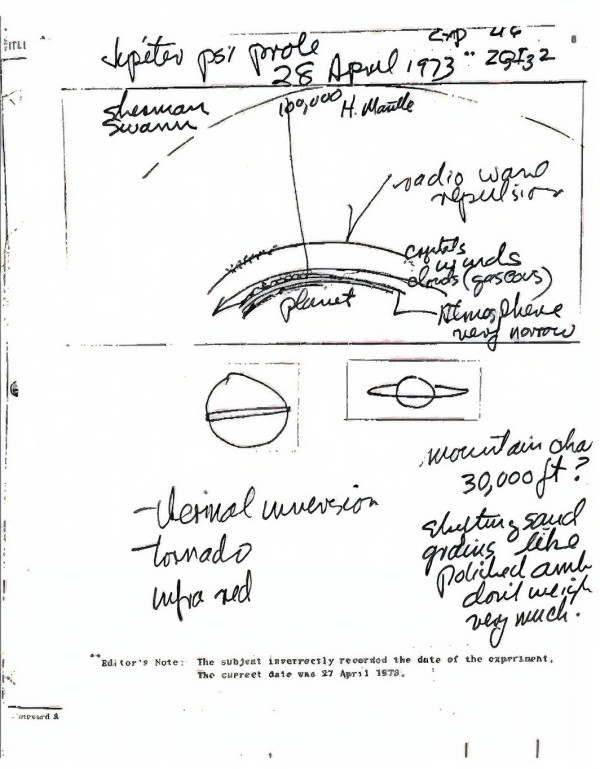 TITLE
Jupiter psi probe
28 April 1973 ** ZGI32
Exp 46
Sherman
Swann
100,000 H. Mantle
radio wave
repulsion
crystals
winds
clouds (gaseous)
planet
Atmosphere
very narrow
mountain cha
30,000 ft?
-thermal inversion
-tornado
infra red
shifting sand
grains like
Poliched amb
don't weigh
very much.
**Editor's Note: The subject incorrectly recorded the date of the experiment.
The correct date was 27 April 1973.